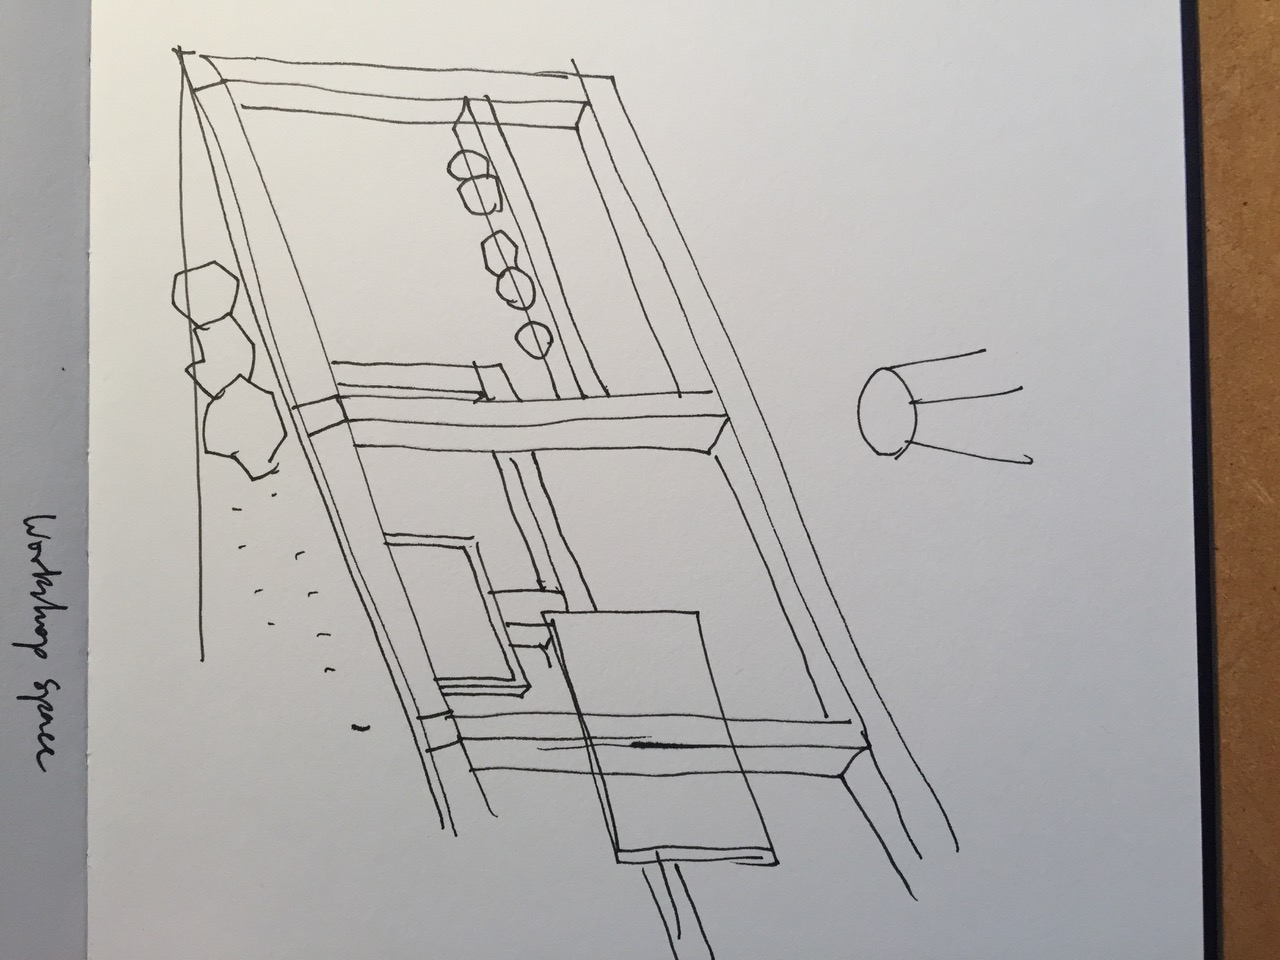 Workshop Space